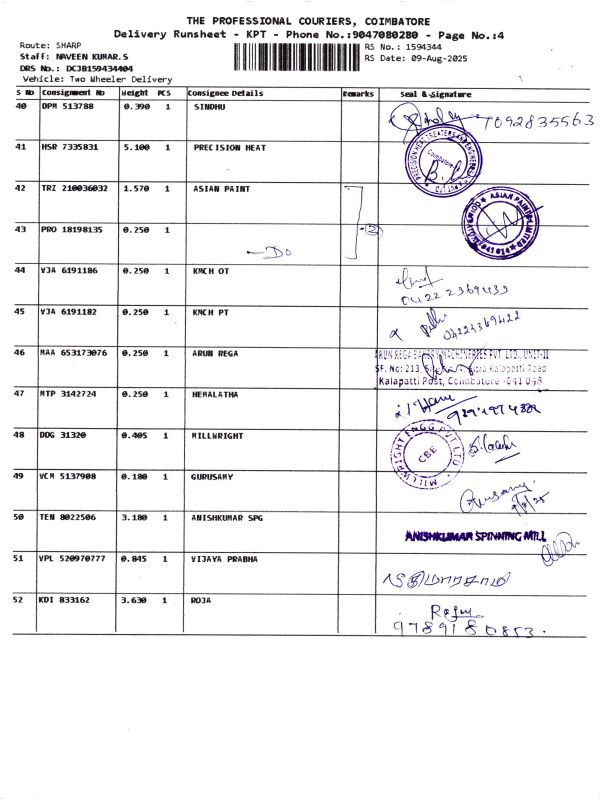 THE PROFESSIONAL COURIERS, COIMBATORE
Delivery Runsheet - KPT - Phone No.:9047080280 - Page No.:4
Route: SHARP
RS No.: 1594344
Staff: NAVEEN KUMAR.S
RS Date: 09-Aug-2025
DRS No.: DCJB159434404
Vehicle: Two Wheeler Delivery
S No Consignment No Weight PCS Consignee Details Remarks Seal & Signature
40 DPM 513788 0.390 1 SINDHU 7092835563
41 HSR 7335831 5.100 1 PRECISION HEAT
42 TRI 210036032 1.570 1 ASIAN PAINT
43 PRO 18198135 0.250 1 Do 2
44 VJA 6191186 0.250 1 KMCH OT 04222369433
45 VJA 6191182 0.250 1 KMCH PT
46 MAA 653173076 0.250 1 ARUN REGA ARUN REGA BAKERY MACHINERIES PVT. LTD., UNIT-II
SF. No: 213, Kalapatti Road
Kalapatti Post, Coimbatore - 641 048
47 MTP 3142724 0.250 1 HEMALATHA
48 DDG 31320 0.405 1 MILLWRIGHT MILLWRIGHT ENGG PVT LTD CBE
49 VCM 5137908 0.180 1 GURUSAMY Gurusamy 9/8/25
50 TEN 8022506 3.180 1 ANISHKUMAR SPG ANISHKUMAR SPINNING MILL
51 VPL 520970777 0.845 1 VIJAYA PRABHA
52 KDI 833162 3.630 1 ROJA
9789180853.